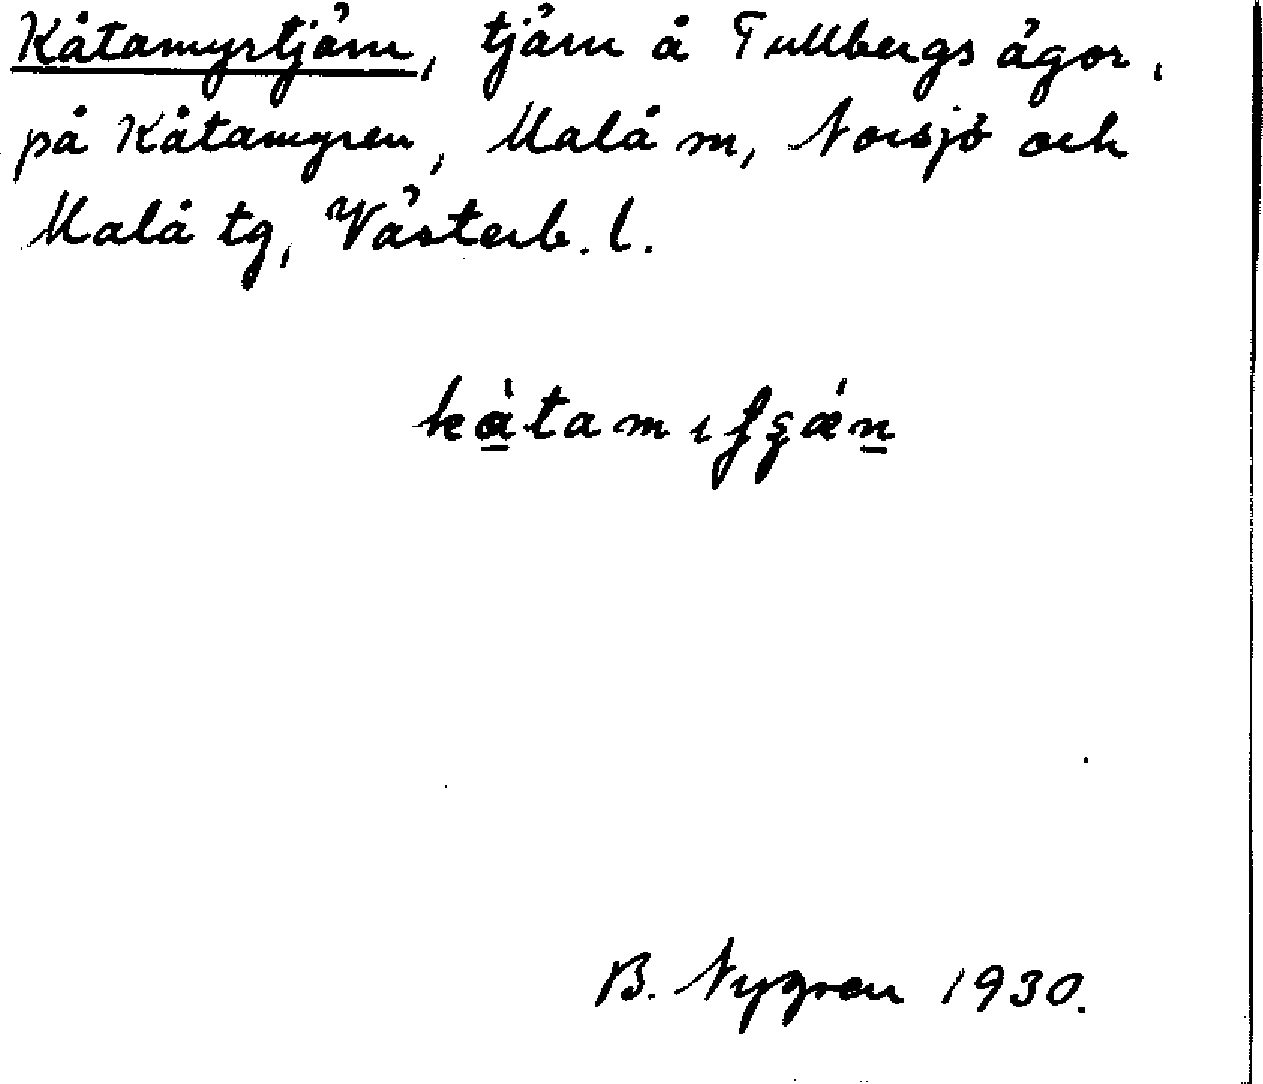 Kåtamyrtjärn, tjärn å Tullbergs ägor,
på Kåtamyren, Malå sn, Norsjö och
Malå tg, Västerb. l.
B. Nygren 1930.